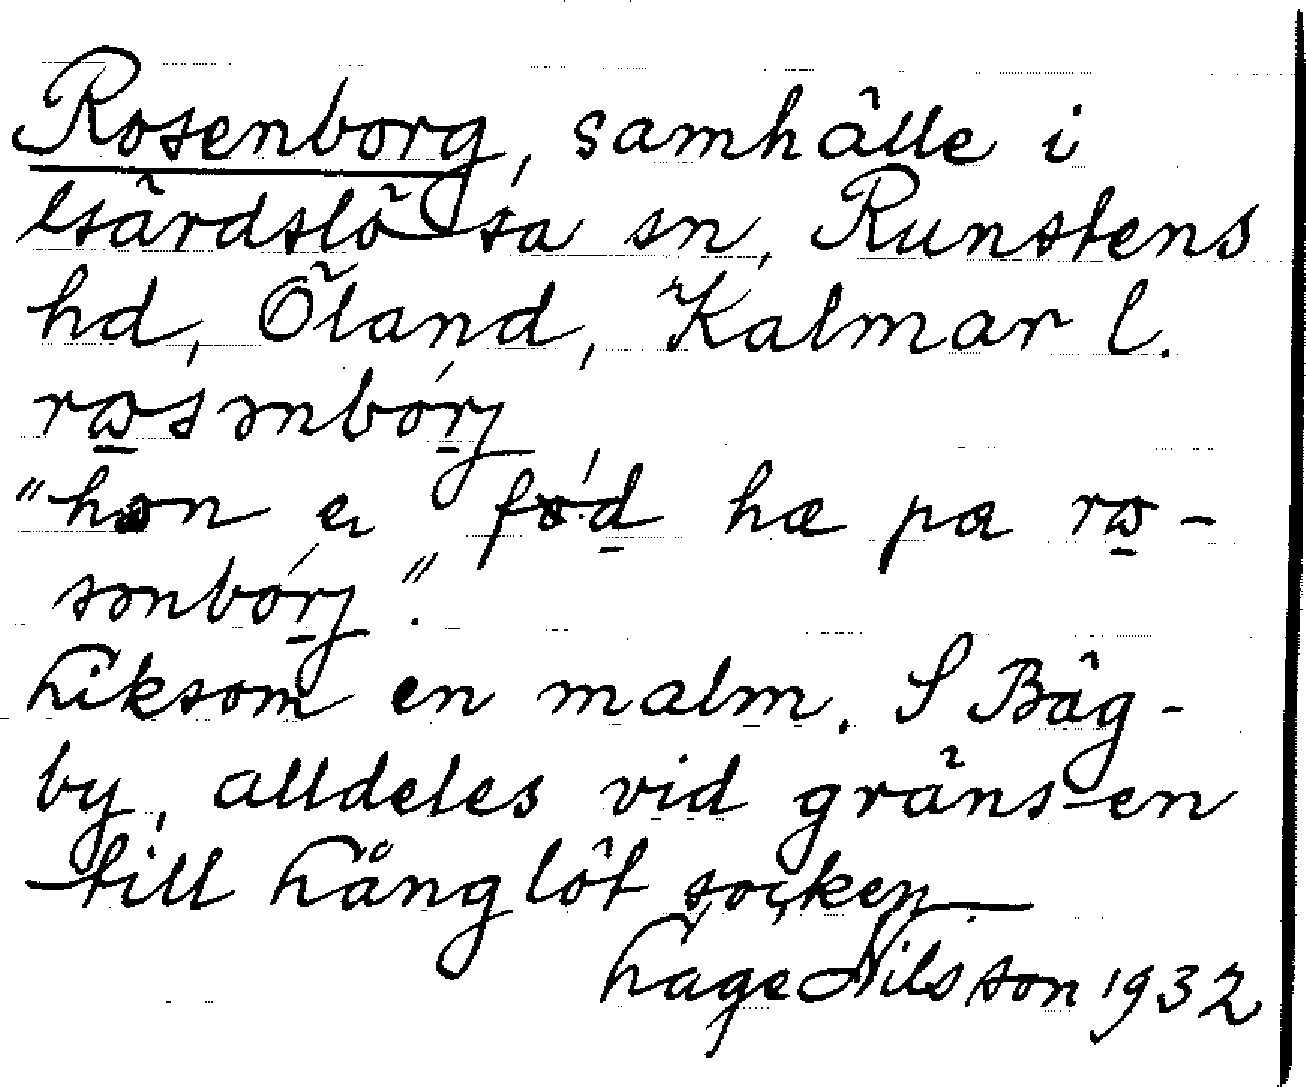 Rosenborg, samhälle i
Gärdslösa sn, Runstens
hd, Öland, Kalmar l.
"hon er fød hæ pa
Liksom en malm. S Bäg-
by, alldeles vid gränsen
till Långlöt socken
Lage Nilsson 1932